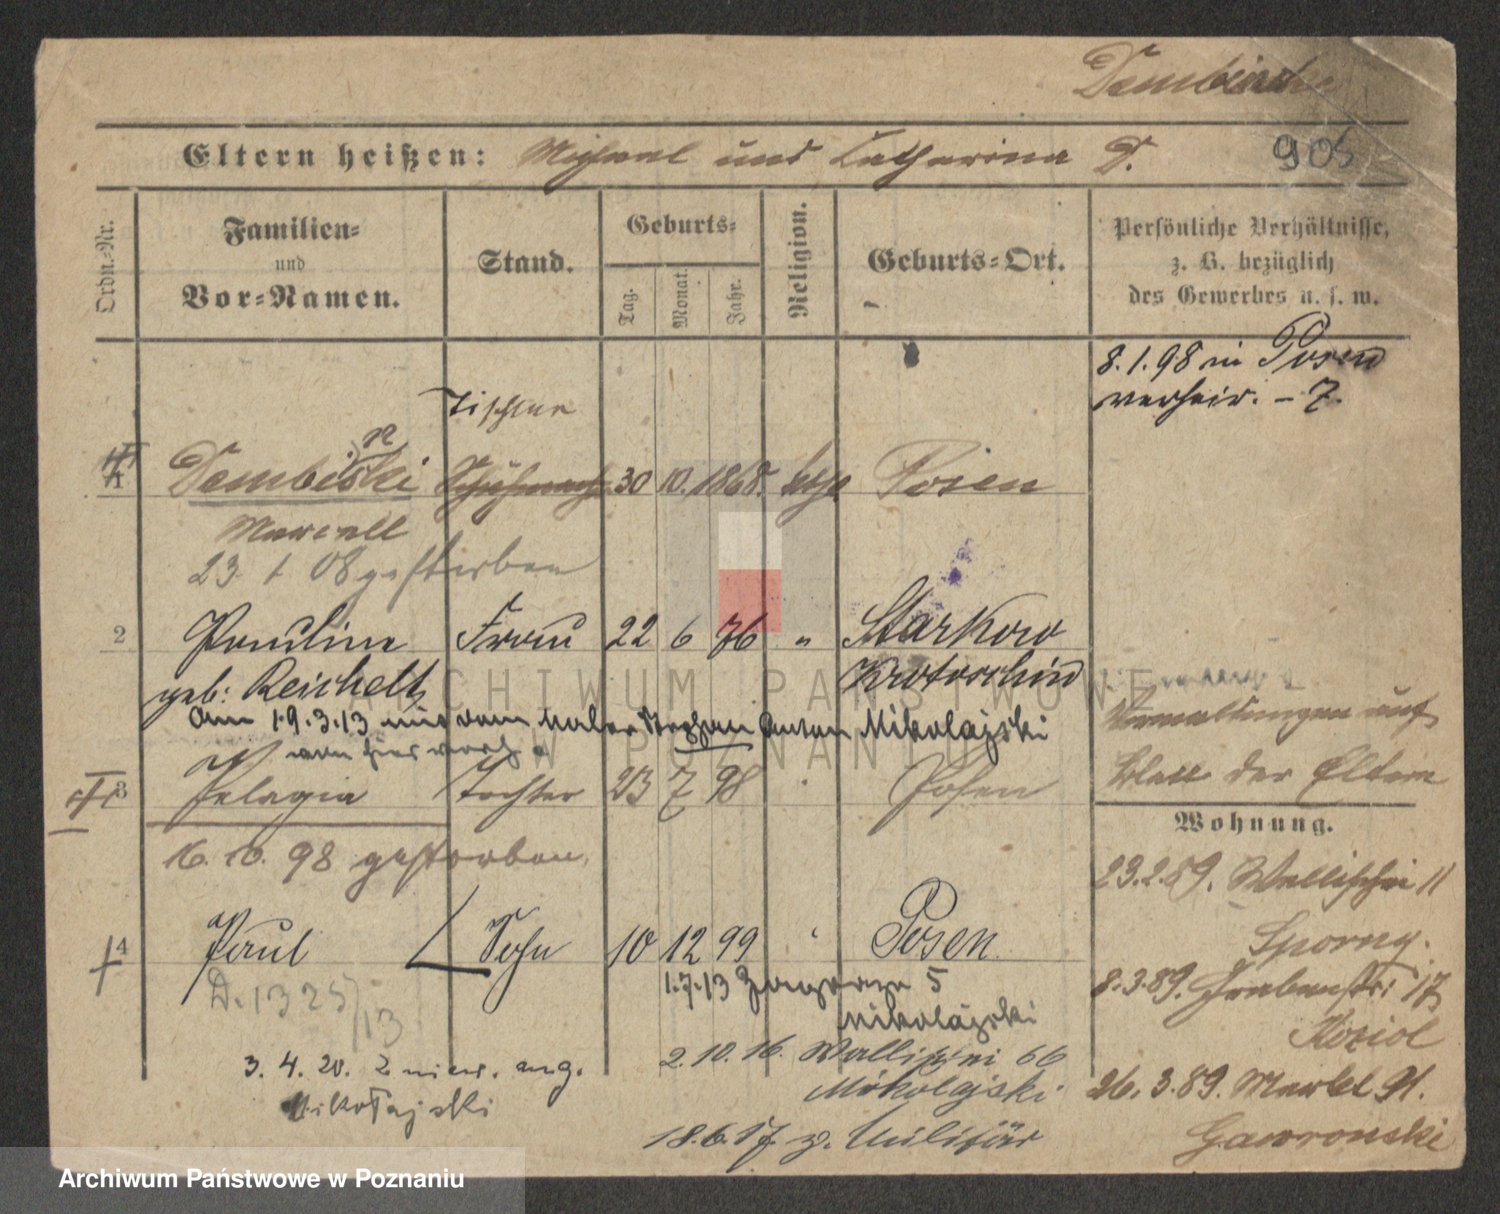 Eltern heißen: Michael und Catharina D. 905
Ordn.-Nr.
Familien-
und
Vor-Namen.
Stand.
Geburts-
Tag.
Monat.
Jahr.
Religion.
Geburts-Ort.
Persönliche Verhältnisse,
z. B. bezüglich
des Gewerbes u. s. w.
8.1.98 in Posen
verheir. - 7.
Tischler
1 Dembiński 30 10. 1868. kath Posen
Marcell
23 1 08 gestorben
2 Pauline Frau 22 6 76 " Starkow
geb: Reichelt, Krotoschin
Am 19.3.13 mit dem Maler Stephan Anton Mikolajski
von hier verh.
auf
Blatt der Eltern
3 Pelagia Tochter 23 7 98 Posen
16.10.98 gestorben,
Wohnung.
23.2.89. Wallischei 11
Sporny.
4 Paul Sohn 10 12 99 Posen
8.3.89. Grabenstr: 17
Koziol
D. 1325/13
1.7.13 Zagorze 5
Mikolajski
3. 4. 20. ang.
Mikołajski
2.10.16. Wallischei 66
Mikolajski
18.6.17. z. Militär
26.3.89. Markt 91.
Gawronski
ARCHIWUM PAŃSTWOWE
W POZNANIU
Archiwum Państwowe w Poznaniu